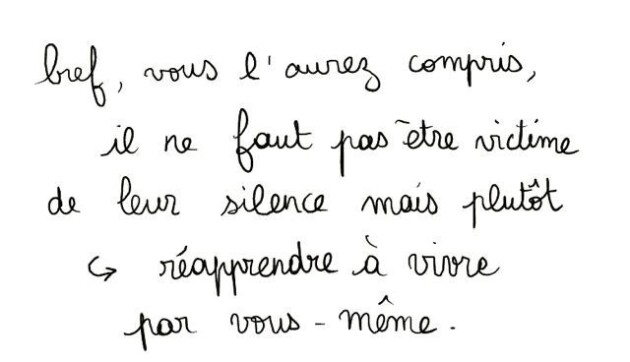 bref, vous l'aurez compris,
il ne faut pas être victime
de leur silence mais plutôt
↪ réapprendre à vivre
par vous-même.